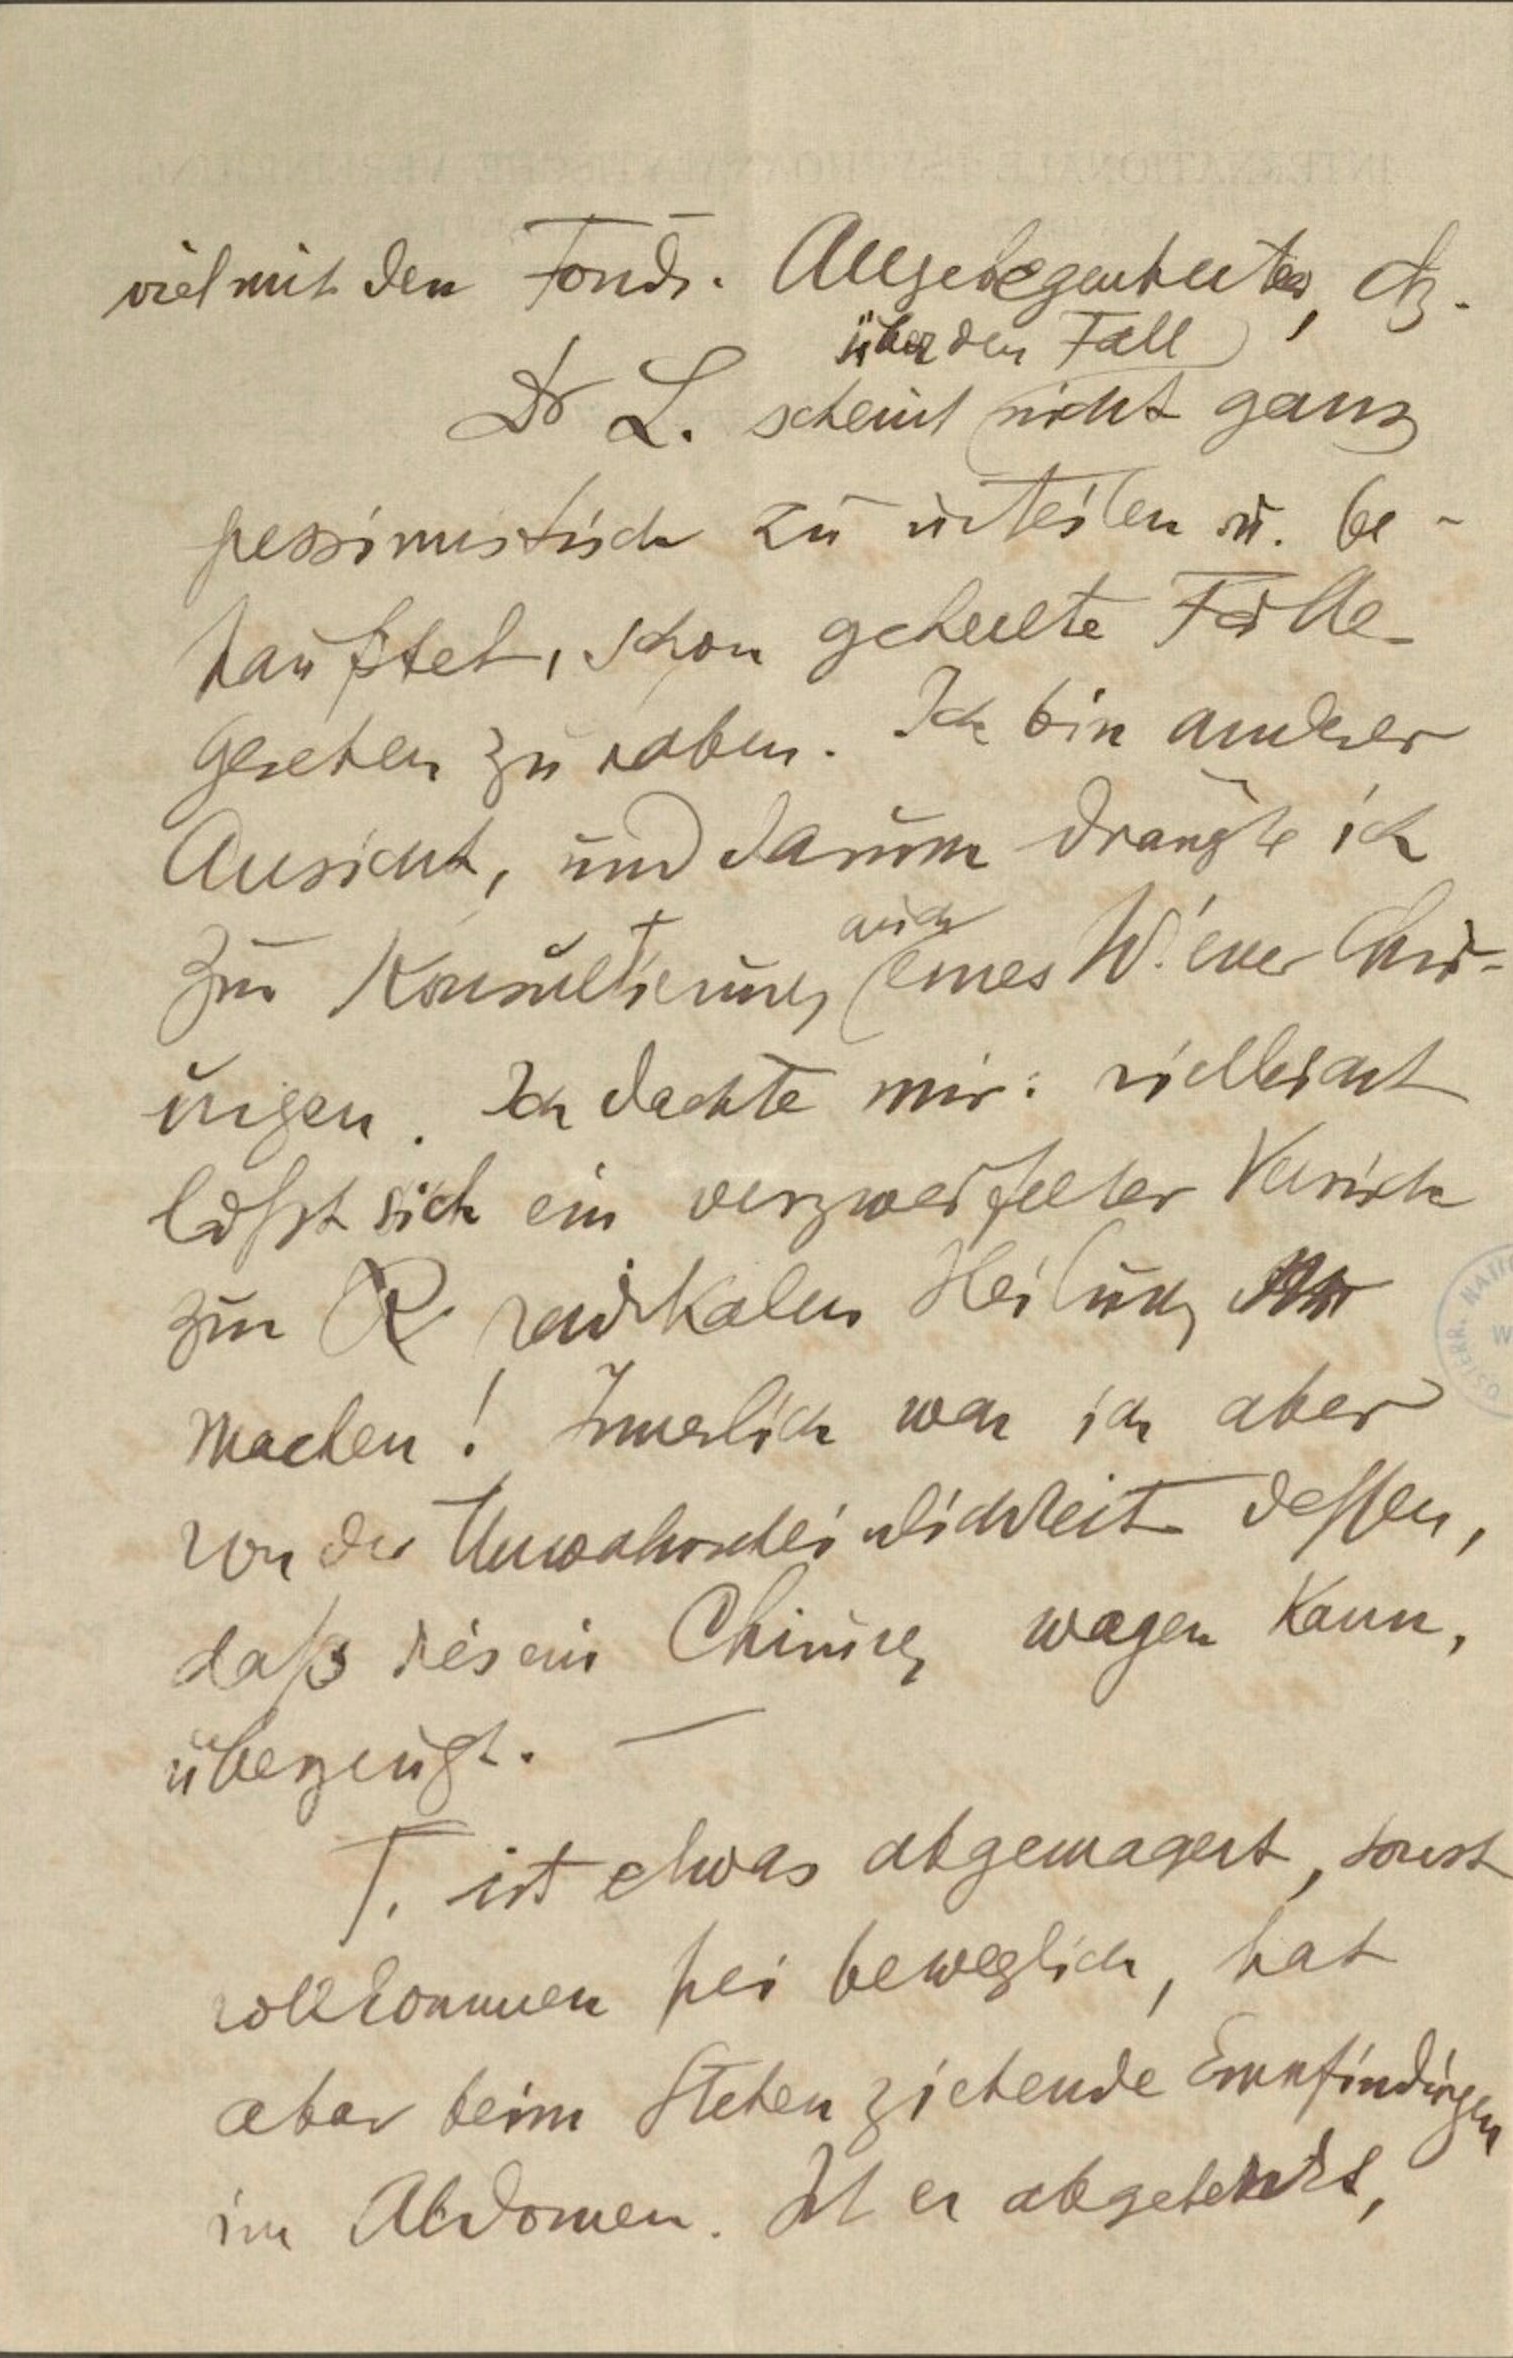 viel mit den Fonds-Angelegenheiten, etz.
über den Fall
Dr L. scheint nicht ganz
pessimistisch zu urteilen u. be-
hauptet, schon geheilte Fälle
gesehen zu haben. Ich bin anderer
Ansicht, und darum drängte ich
auch
zur Konsultierung eines Wiener Chir-
urgen. Ich dachte mir: vielleicht
läßt sich ein verzweifelter Versuch
zur R radikalen Heilung
machen! Innerlich war ich aber
von der Unwahrscheinlichkeit dessen,
daß dies ein Chirurg wagen kann,
überzeugt. —
T. ist etwas abgemagert, sonst
vollkommen frei beweglich, hat
aber beim Stehen ziehende Empfindungen
im Abdomen. Ist er abgelenkt,